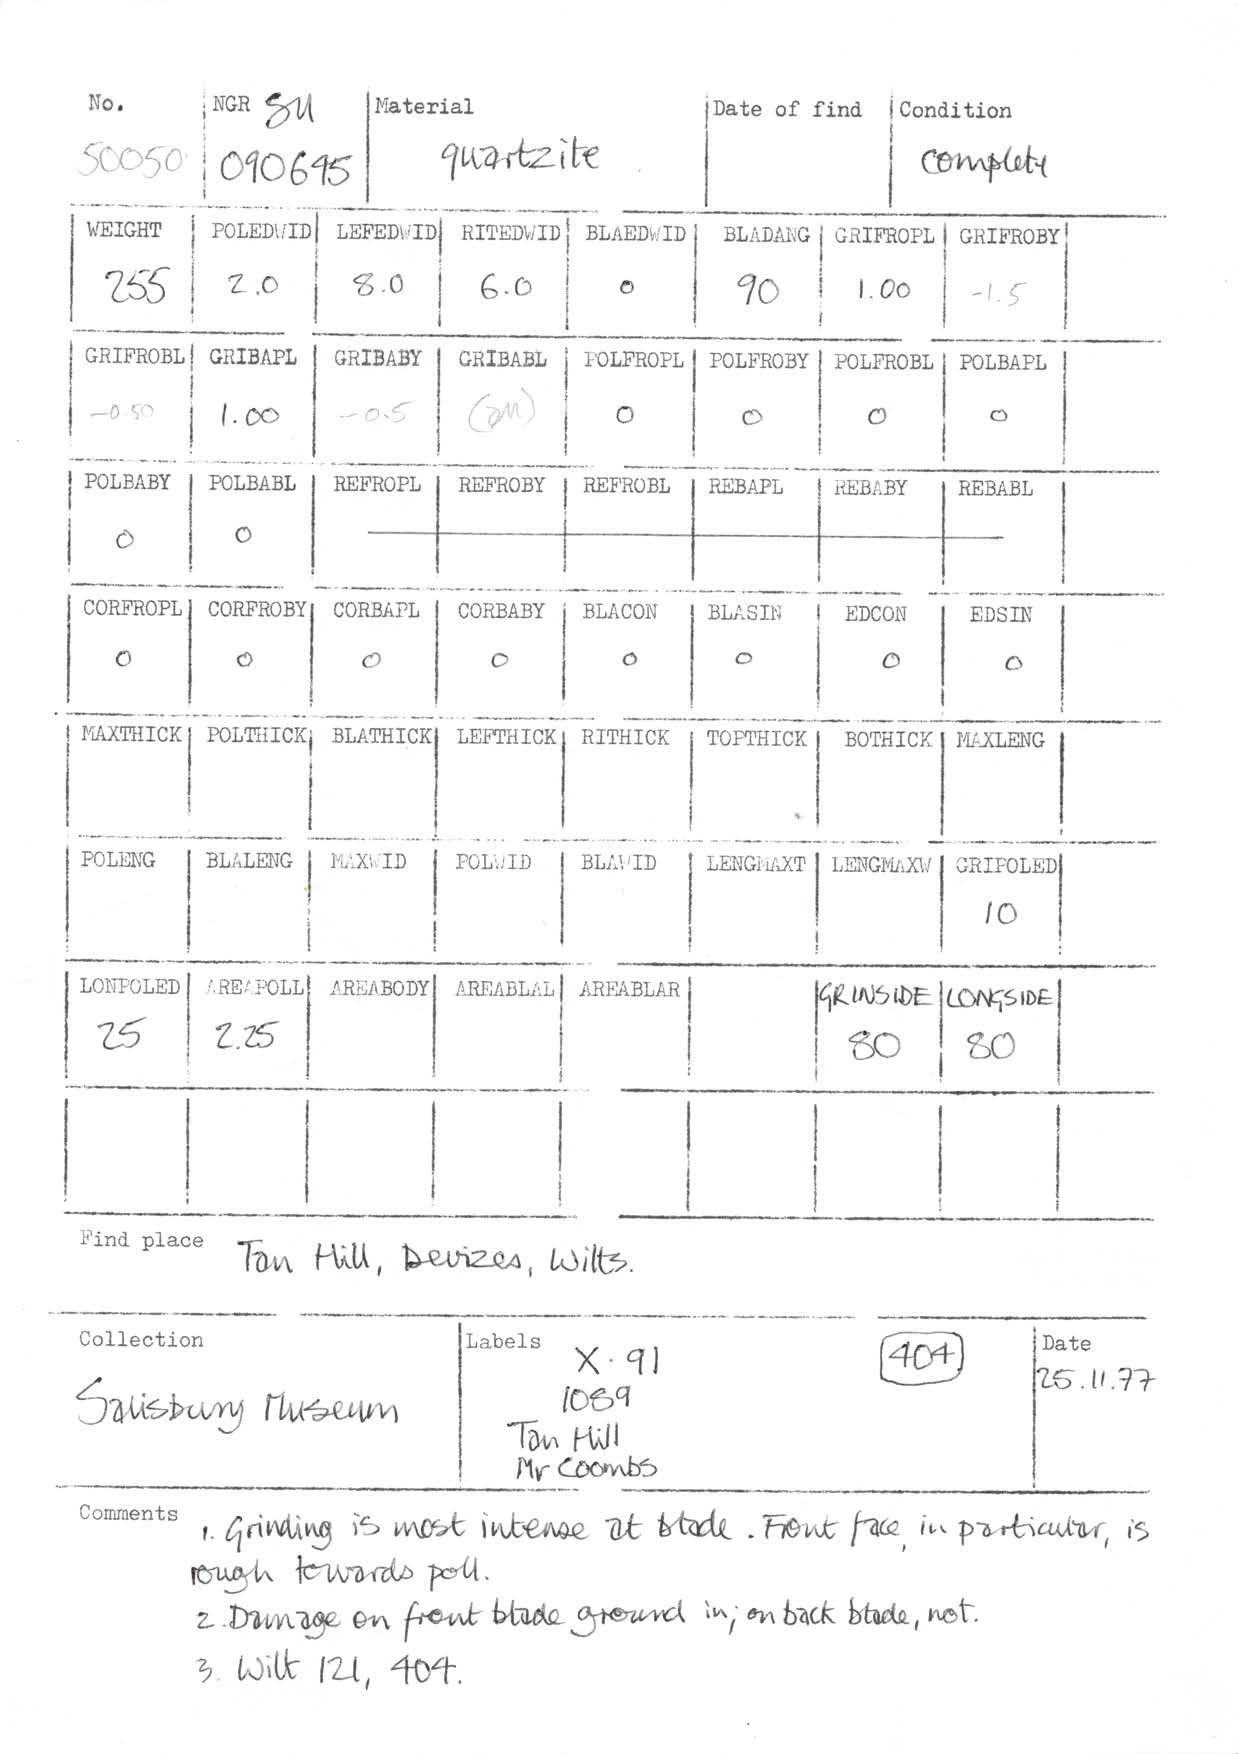 No. NGR SU Material Date of find Condition
50050 090645 quartzite complete
WEIGHT POLEDWID LEFEDWID RITEDWID BLAEDWID BLADANG GRIFROPL GRIFROBY
255 2.0 8.0 6.0 0 90 1.00 -1.5
GRIFROBL GRIBAPL GRIBABY GRIBABL POLFROPL POLFROBY POLFROBL POLBAPL
-0.50 1.00 -0.5 0 0 0 0
POLBABY POLBABL REFROPL REFROBY REFROBL REBAPL REBABY REBABL
0 0
CORFROPL CORFROBY CORBAPL CORBABY BLACON BLASIN EDCON EDSIN
0 0 0 0 0 0 0 0
MAXTHICK POLTHICK BLATHICK LEFTHICK RITHICK TOPTHICK BOTHICK MAXLENG
POLENG BLALENG MAXWID POLWID BLAWID LENGMAXT LENGMAXW GRIPOLED
10
LONPOLED AREAPOLL AREABODY AREABLAL AREABLAR GRINSIDE LONGSIDE
25 2.25 80 80
Find place Tan Hill, Devizes, Wilts.
Collection Labels X.91 404 Date
Salisbury Museum 1089 25.11.77
Tan Hill
Mr Coombs
Comments 1. Grinding is most intense at blade. Front face, in particular, is
rough towards poll.
2. Damage on front blade ground in; on back blade, not.
3. Wilt 121, 404.